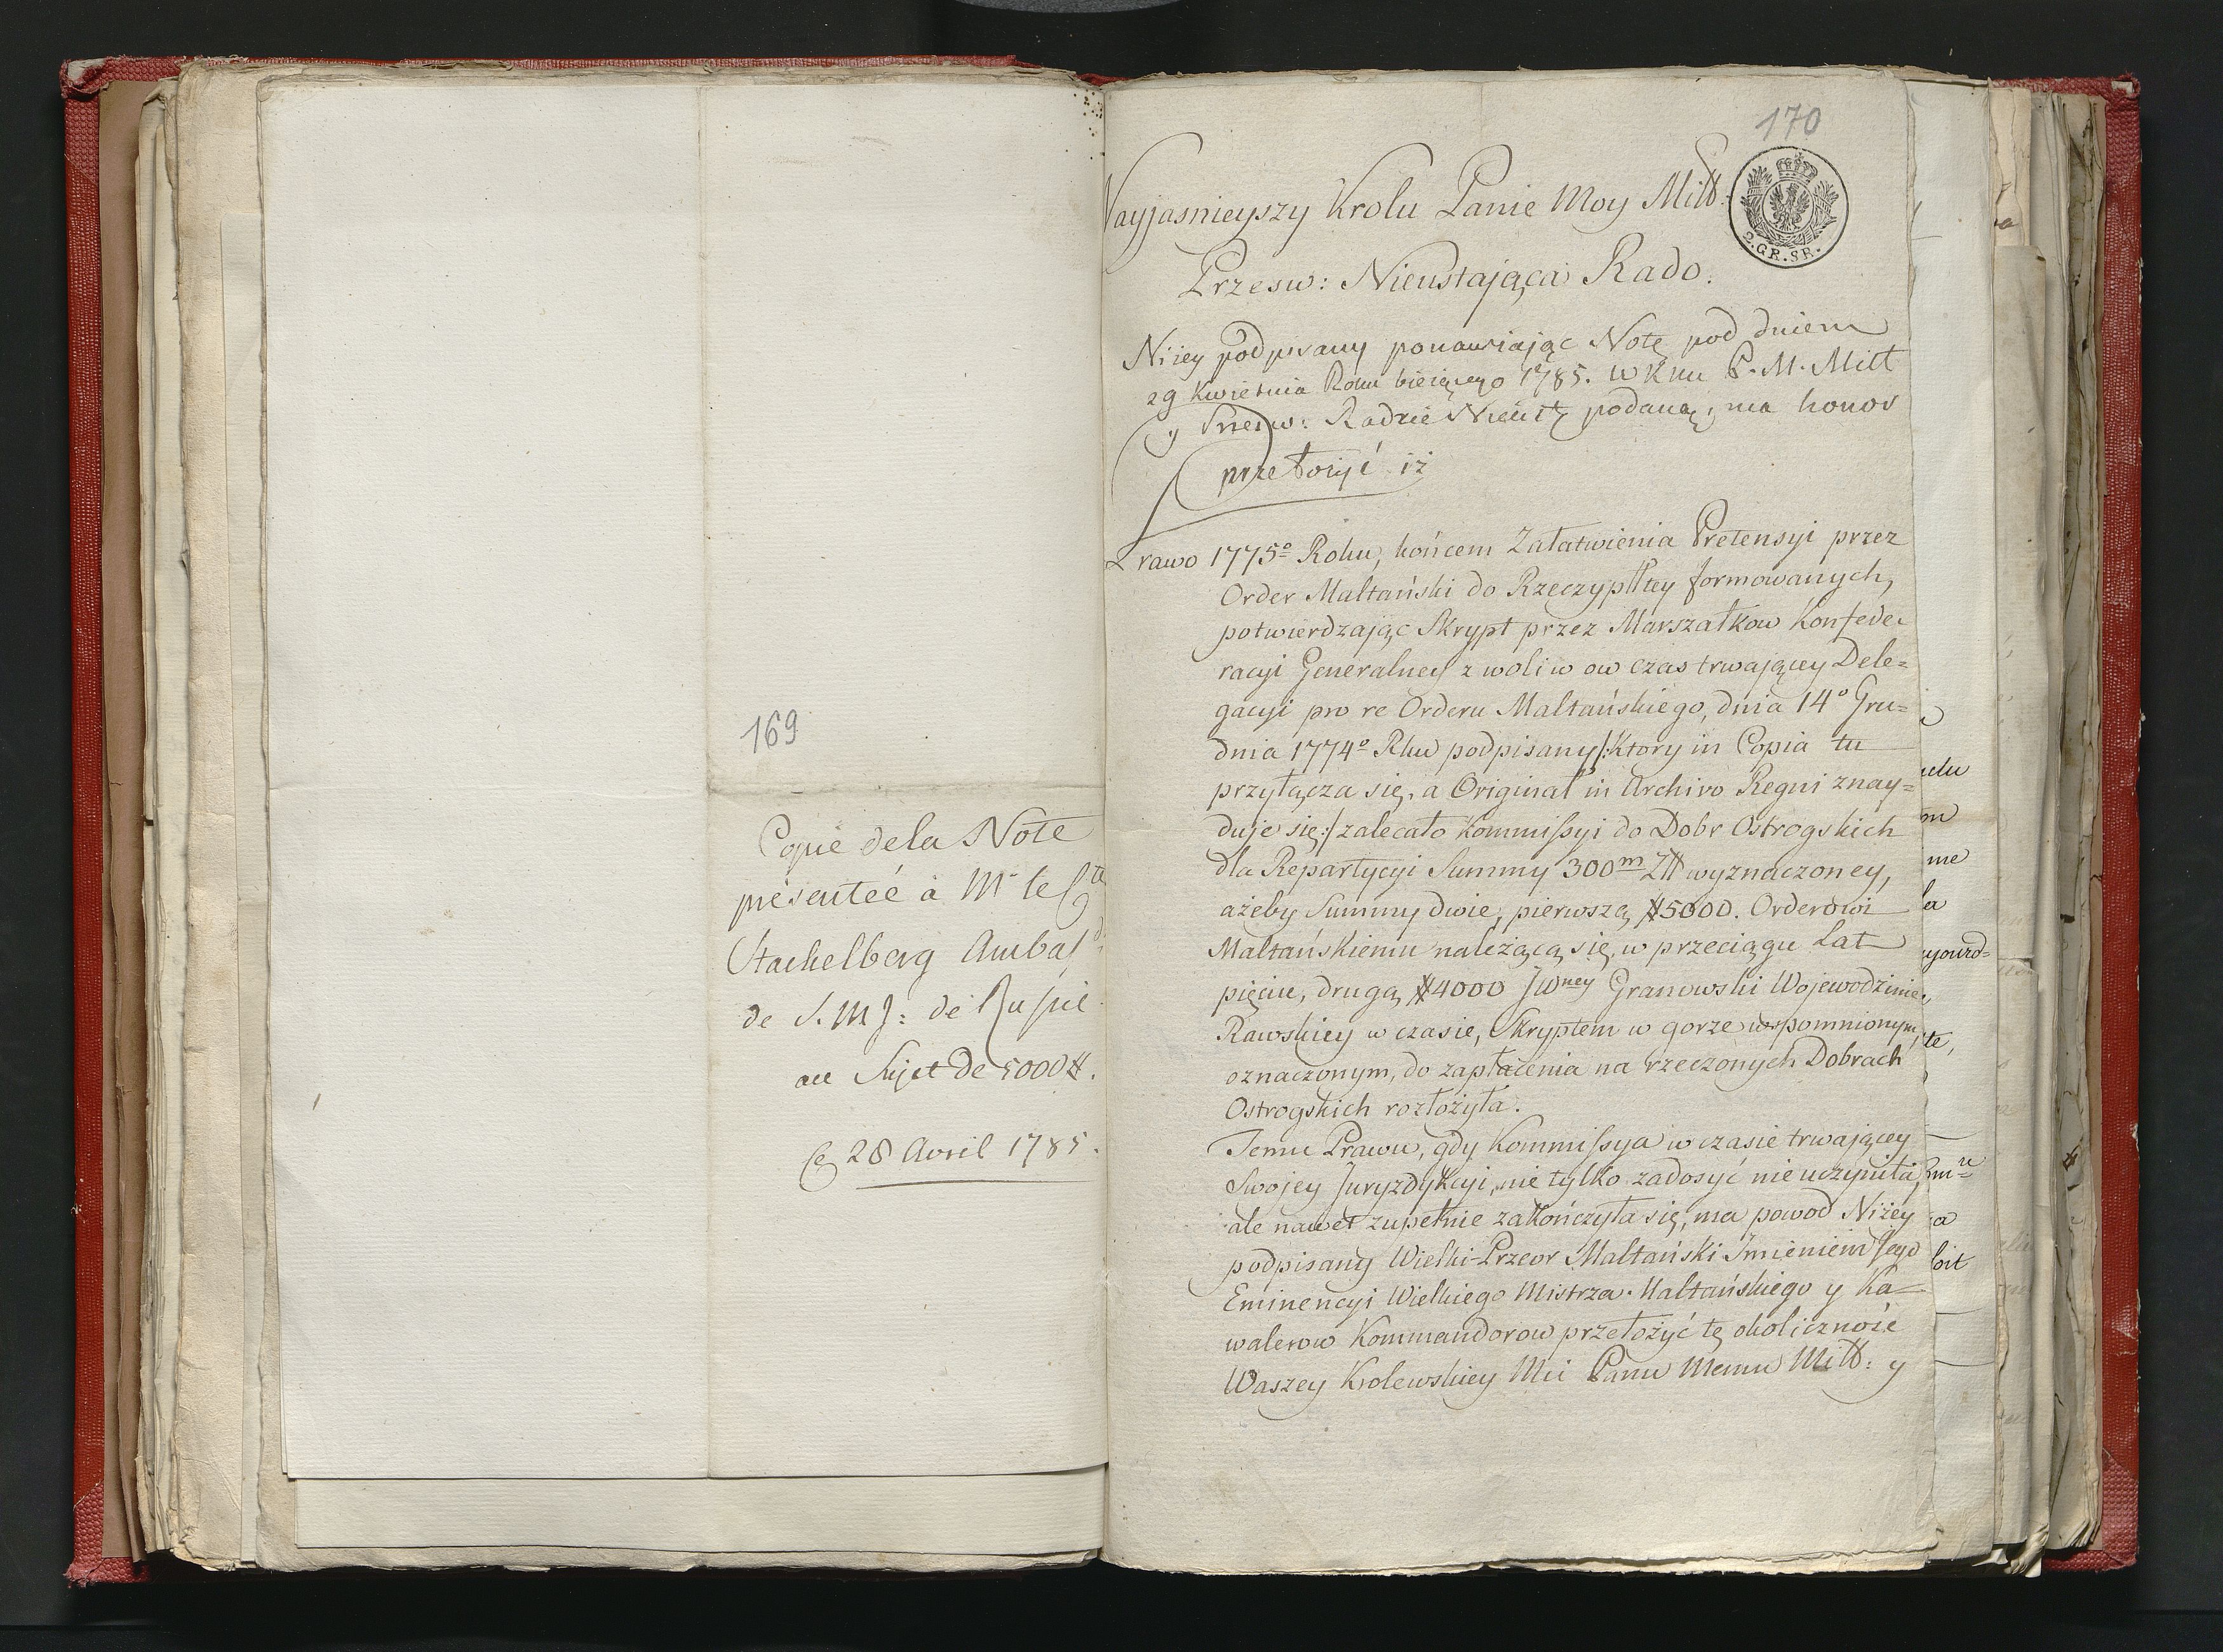 169
Copie de la Note
présenteé à Mr le Cte
Stackelberg Ambasd:
de S. M J: de Russie
au Sujet de 5000 #.
Ce 28 Avril 1785.
170
Nayjasnieyszy Krolu Panie Moy Miłł:
2.GR.SR.
Przesw: Nieustająca Rado.
Niżey podpisany ponawiając Notę pod dniem
29 Kwietnia Roku bieżącego 1785. W Kmu P. M. Miłł
y Przesw: Radzie Nieust podaną, ma honor
przełożyć iż
Prawo 1775º Roku, końcem Załatwienia Pretensyi przez
Order Maltański do Rzeczypłłtey formowanych,
potwierdzając Skrypt przez Marszałkow Konfede-
racyi Generalney z woli w ow czas trwającey Dele=
gacyi pro re Orderu Maltańskiego, dnia 14º Gru=
dnia 1774º Rku podpisany/:Ktory in Copia tu
przyłącza się, a Originał in Archivo Regni znay=
duje się:/ zalecało Kommissyi do Dobr Ostrogskich
dla Repartycyi Summy 300m Złł wyznaczoney,
ażeby Summy dwie, pierwszą #5000. Orderowi
Maltańskiemu należącą się, w przeciągu Lat
pięciu, drugą #4000 JWney Granowski Wojewodzinie
Rawskiey w czasie, Skryptem w gorze wspomnionym,
oznaczonym, do zapłacenia na rzeczonych Dobrach
Ostrogskich rozłożyła.
Temu Prawu, gdy Kommissya w czasie trwającey
Swojey Juryzdykcyi, nie tylko zadosyć nie uczyniła,
ale nawet zupełnie zakończyła się, ma powod Niżey
podpisany Wielki-Przeor Maltański Imieniem Jego
Eminencyi Wielkiego Mistrza Maltańskiego y Ka=
walerow Kommandorow przełożyć tę okoliczność
Waszey Krolewskiey Mci Panu Memu Miłł: y